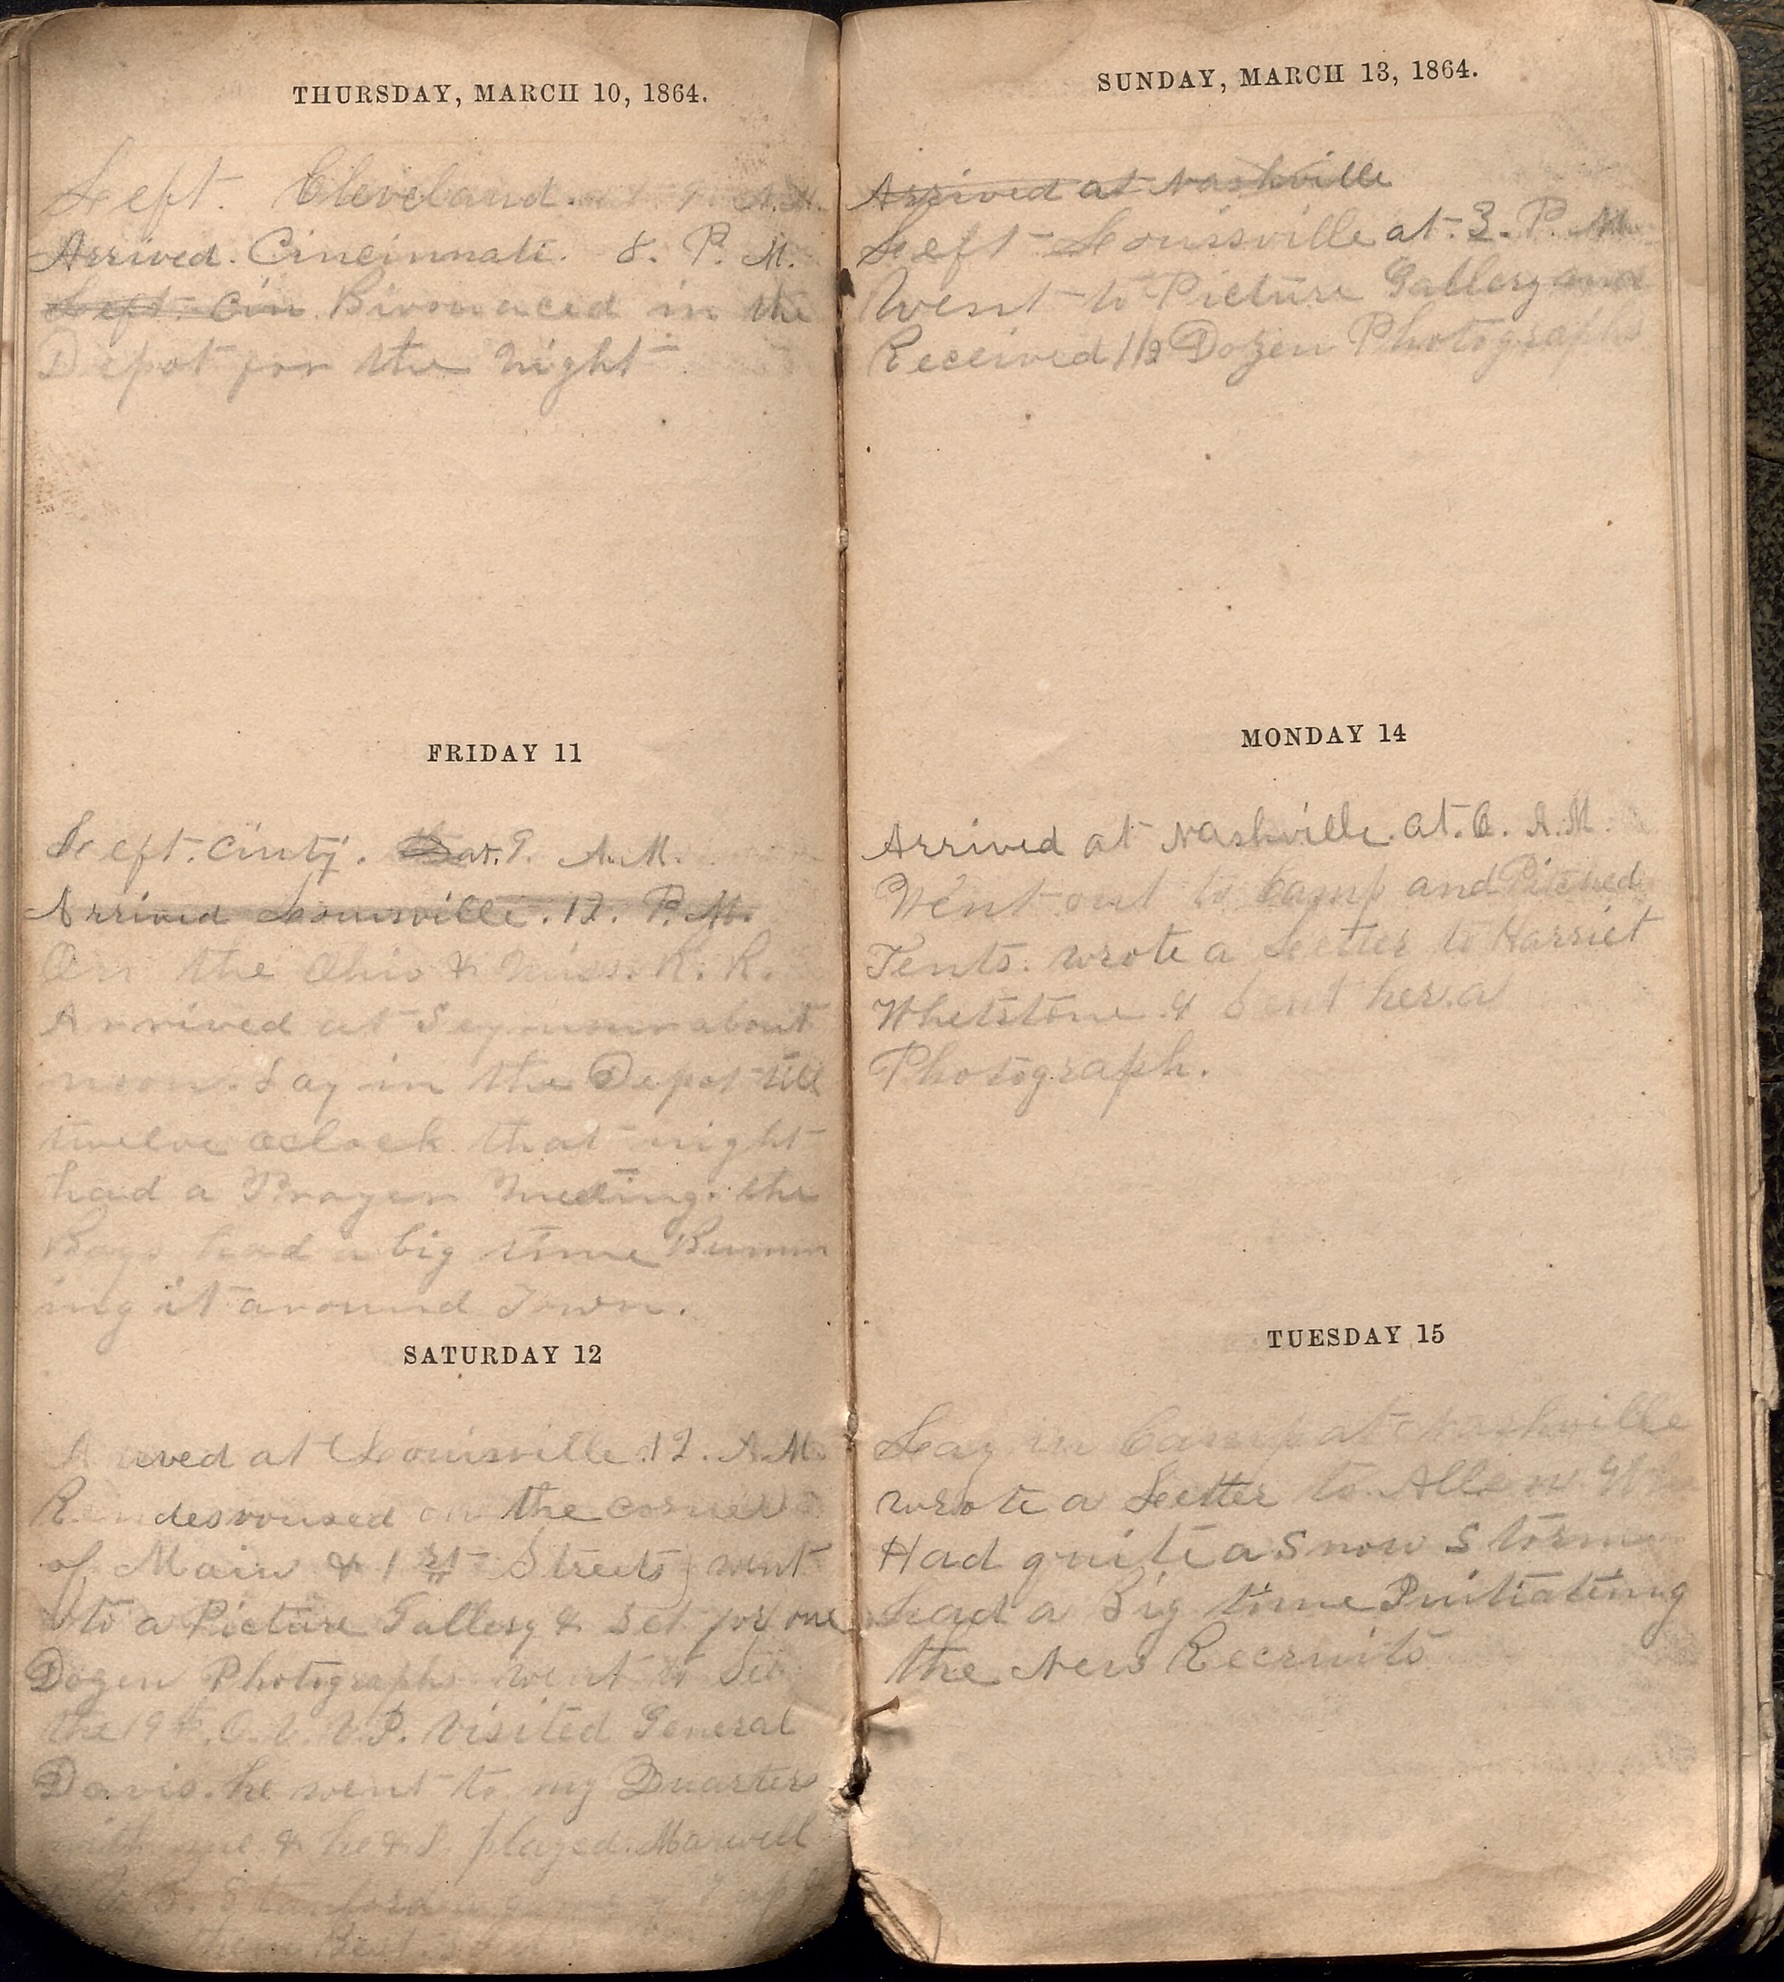 THURSDAY, MARCH 10, 1864.
Left. Cleveland. at 9 A.M.
Arrived. Cincinnati. 8. P. M.
Left. Cin Bivouaced in the
Depot for the night
FRIDAY 11
Left. Cinty. at. 9. A.M.
Arrived Louisville. 12. P. M.
On the Ohio & Miss. R. R.
Arrived at Seymour about
noon. Lay in the Depot till
twelve oclock that night
had a Prayer Meeting. the
Boys had a big time Bumm
ing it around Town.
SATURDAY 12
Arrived at Louisville. 12. A.M.
Rendesvoused on the corner
of Main & 1st Streets went
to a Picture Gallery & Set for one
Dozen Photographs went to See
the 19th. O. V. V. I. Visited General
Davis. he went to my Quarters
with me & he & I. played. Maxwell
& Stanford a game of 7 up
them Beat
SUNDAY, MARCH 13, 1864.
Arrived at Nashville
Left Louisville at. 3. P. M.
Went to Picture Gallery and
Received 1/2 Dozen Photographs
MONDAY 14
Arrived at Nashville. at. 6. A.M.
Went out to Camp and Pitched
Tents. wrote a Letter to Harriet
Whetstone & Sent her. a
Photograph.
TUESDAY 15
Lay in Camp at Nashville
wrote a Letter to Allen
Had quite a Snow Storm
had a Big time Initiating
the New Recruits